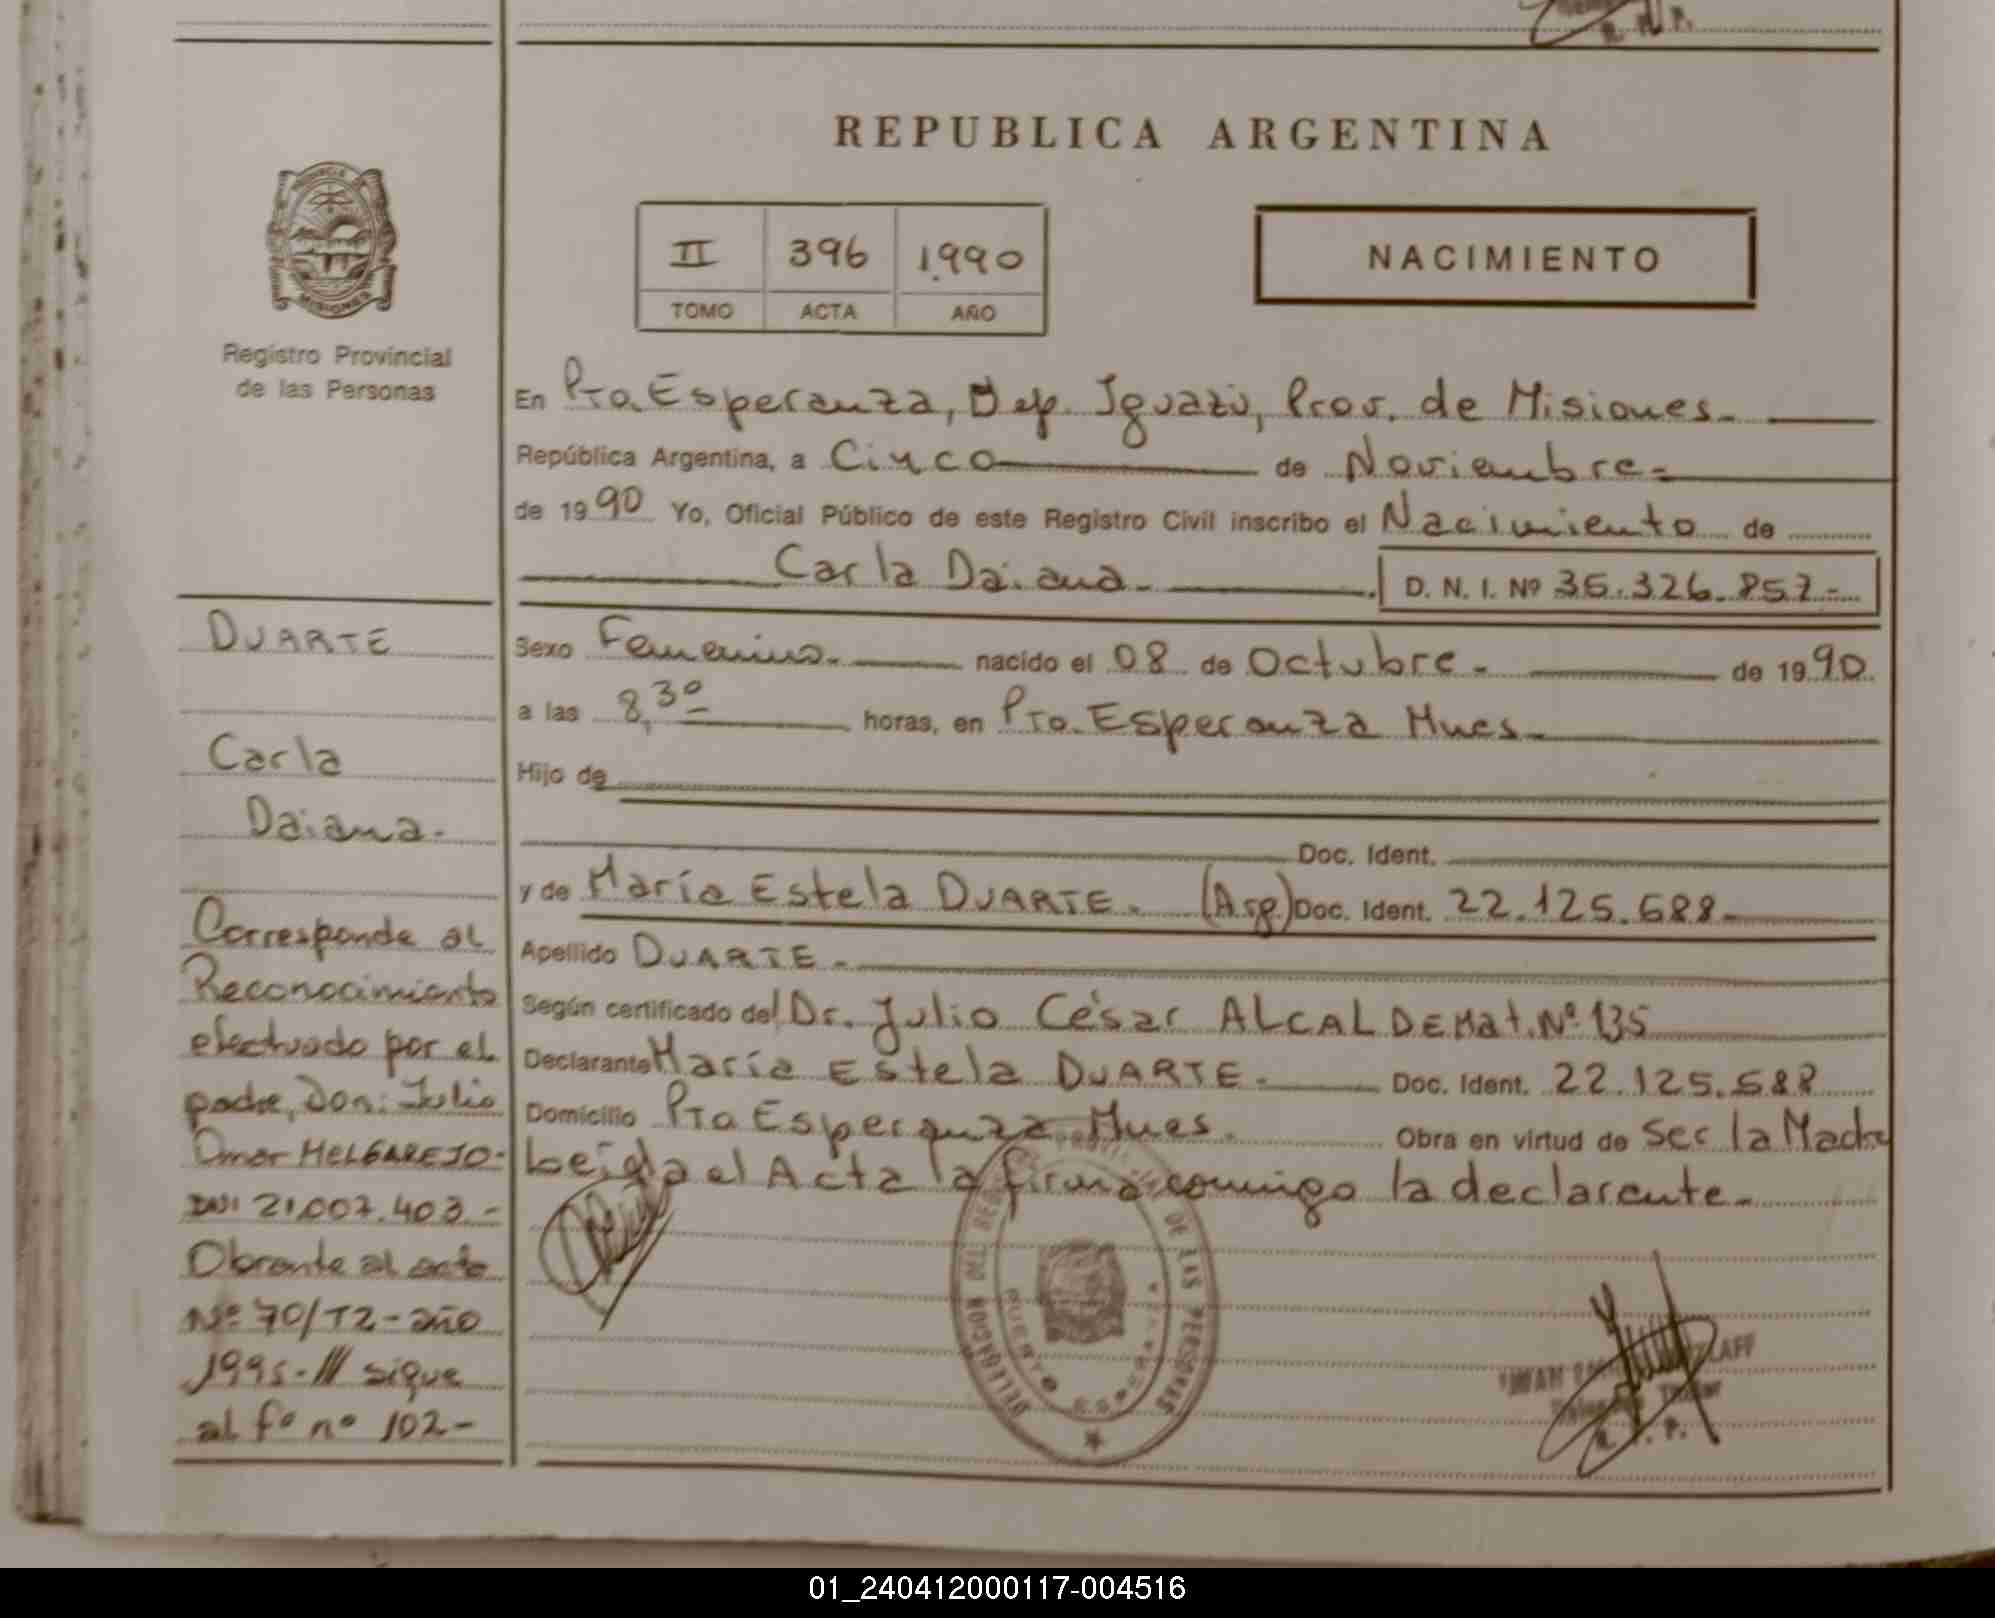 REPUBLICA ARGENTINA
PROVINCIA DE
MISIONES
Registro Provincial
de las Personas
II 396 1990
TOMO ACTA AÑO
NACIMIENTO
En Pto. Esperanza, Dep. Iguazú, Prov. de Misiones.
República Argentina, a Cinco de Noviembre.
de 1990 Yo, Oficial Público de este Registro Civil inscribo el Nacimiento de
Carla Daiana.
D. N. I. Nº 35.326.857.-
Sexo Femenino. nacido el 08 de Octubre. de 1990.
a las 8,30 horas, en Pto. Esperanza Mnes.
Hijo de
Doc. Ident.
y de María Estela DUARTE. (Arg.) Doc. Ident. 22.125.688.
Apellido DUARTE.
Según certificado del Dr. Julio César ALCALDE Mat. Nº 135
Declarante María Estela DUARTE. Doc. Ident. 22.125.688
Domicilio Pto Esperanza Mnes. Obra en virtud de Ser la Madre
Leída el Acta la firma conmigo la declarante.
DUARTE
Carla
Daiana.
Corresponde al
Reconocimiento
efectuado por el
padre, Don: Julio
Omar MELGAREJO.
DNI 21.007.403.-
Obrante al acta
Nº 70/T2-año
1995-/// sigue
al fº nº 102-
DELEGACION DEL REG PROVI DE LAS PERSONAS
PUERTO ESPERANZA
R. P.
01_240412000117-004516